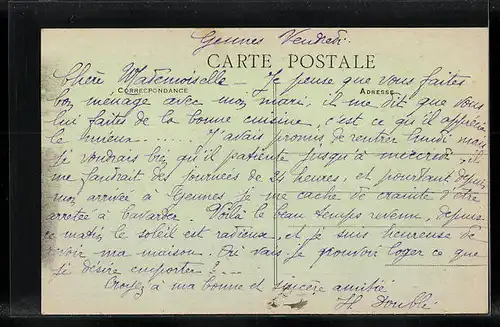 Gennes Vendredi.
CARTE POSTALE
Chère Mademoiselle - Je pense que vous faites
CORRESPONDANCE
ADRESSE
bon ménage avec mon mari, il me dit que vous
lui faites de la bonne cuisine, c'est ce qu'il apprécie
le mieux...... J'avais promis de rentrer lundi mais
je voudrais bien qu'il patiente jusqu'à mercredi, il
me faudrait des journées de 24 heures, et pourtant depuis
mon arrivée à Gennes je me cache de crainte d'être
arretée à bavarder. Voilà le beau temps revenu, depuis
ce matin le soleil est radieux et je suis heureuse de
revoir ma maison. Où vais-je pouvoir loger ce que
je désire emporter ?...
Croyez à ma bonne et sincère amitié
Doublé